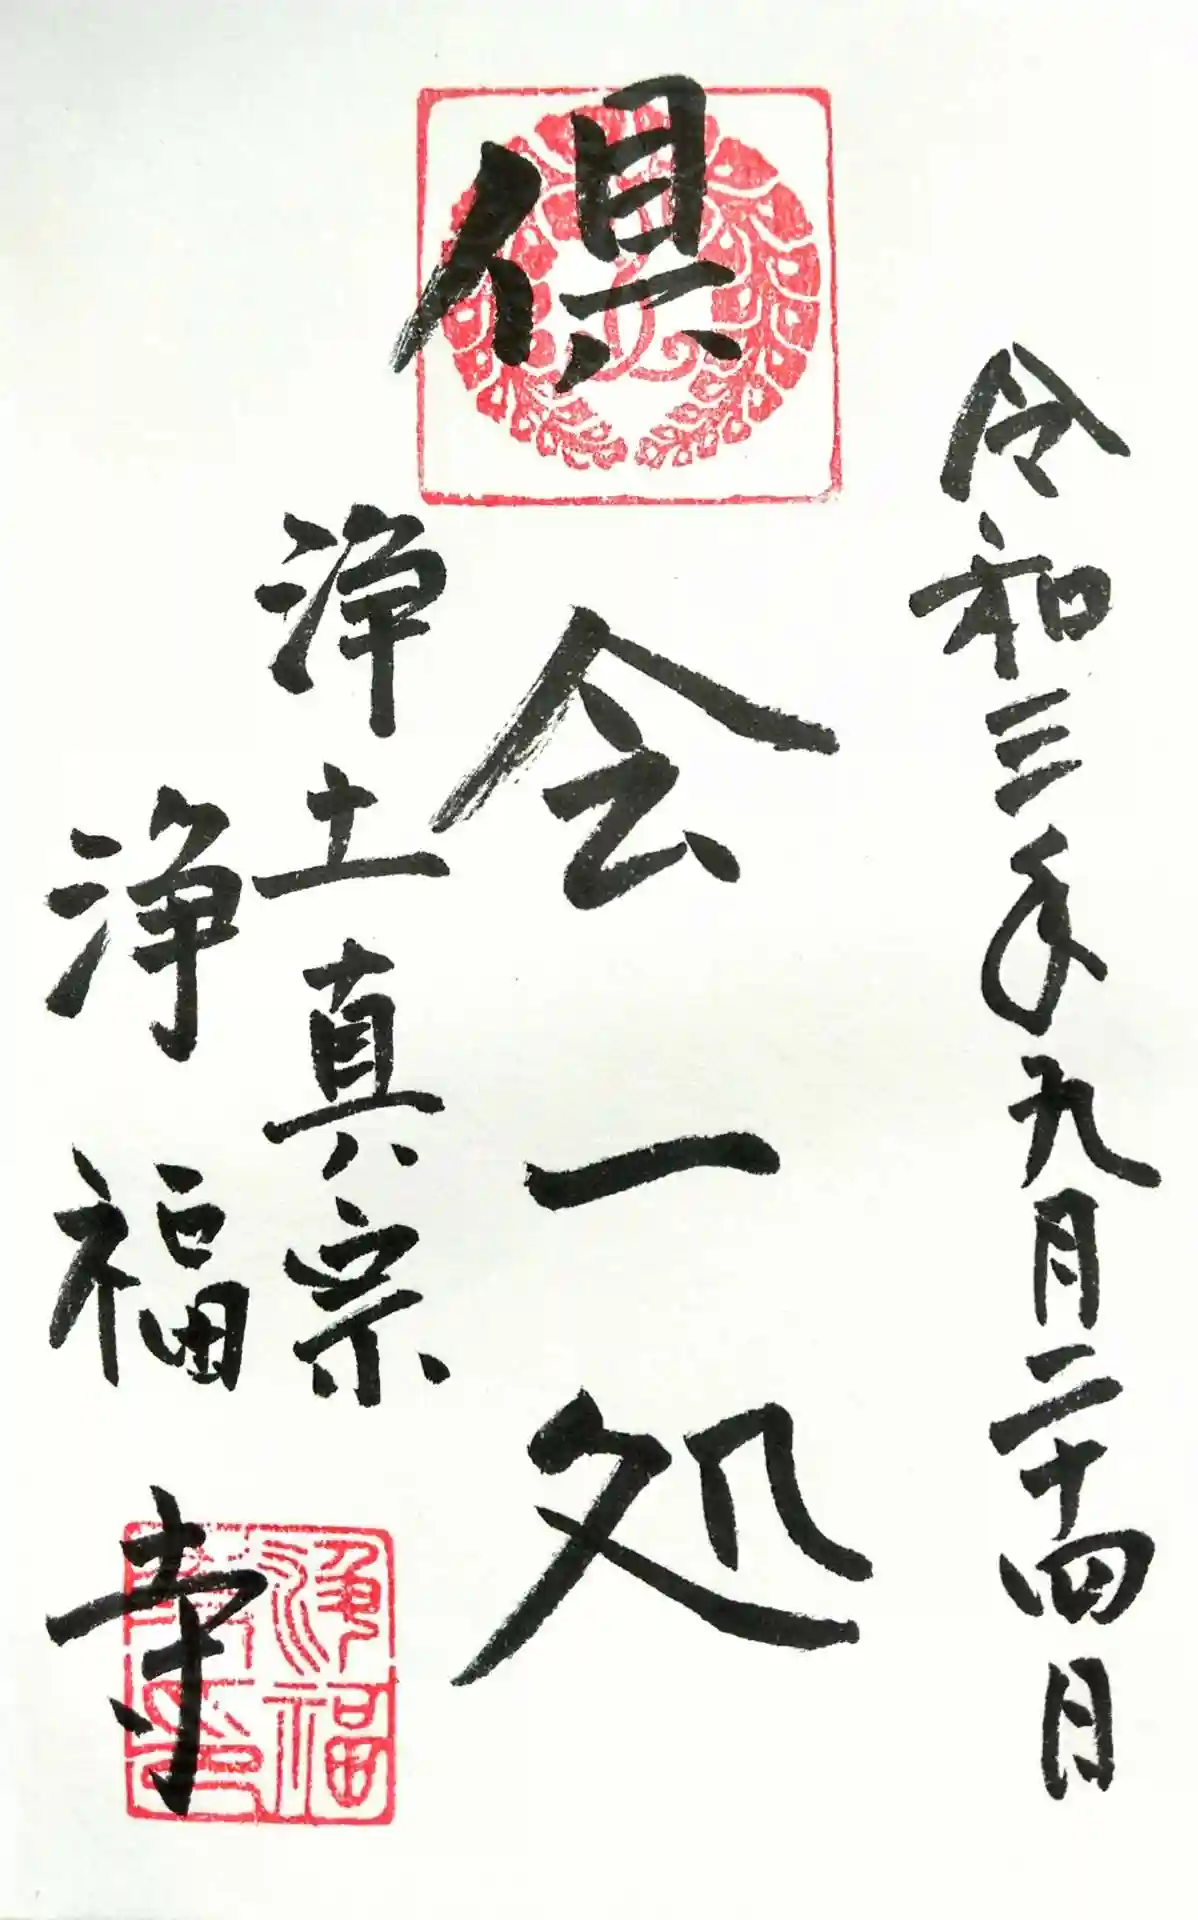 令和三年九月二十四日
倶会一処
浄土真宗
浄福寺
浄福寺印